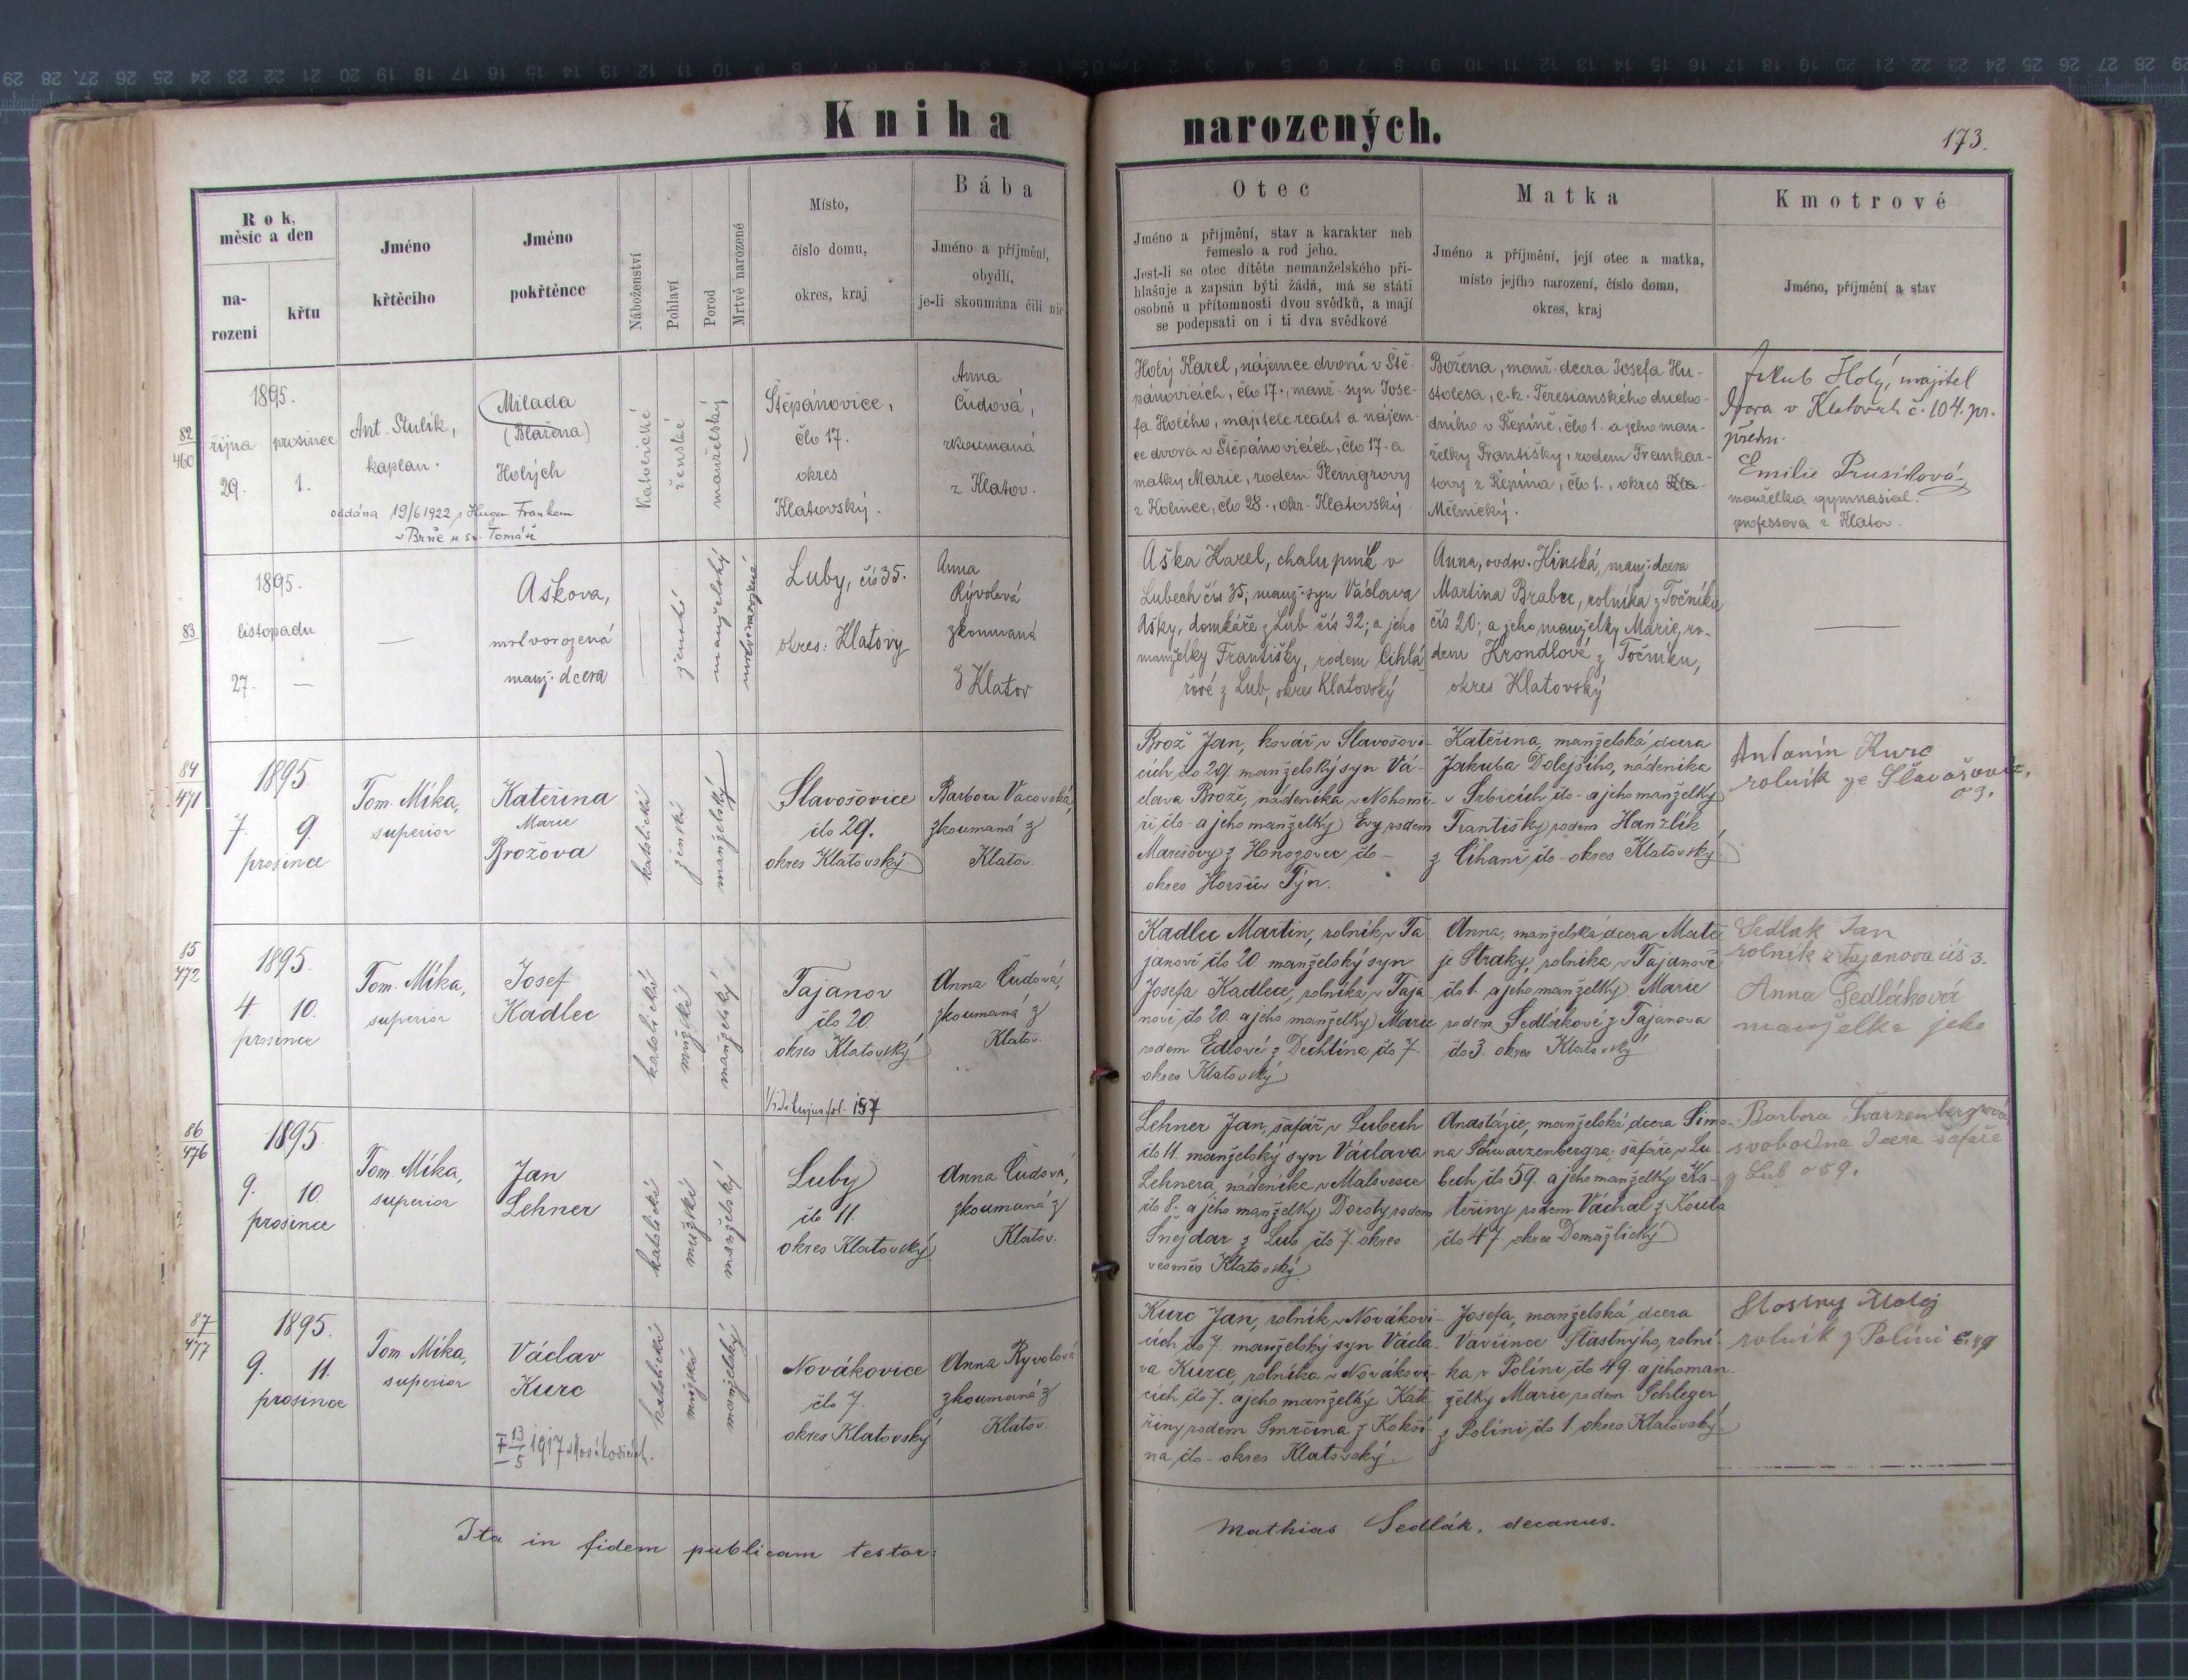 Kniha narozených.
173.
Rok,
měsíc a den
na-
rozeni
křtu
Jméno
křtěcího
Jméno
pokřtěnce
Náboženství
Pohlaví
Porod
Mrtvě narozené
Místo,
číslo domu,
okres, kraj
Bába
Jméno a příjmění,
obydlí,
je-li skoumána čili nic
Otec
Jméno a příjmění, stav a karakter neb
řemeslo a rod jeho.
Jest-li se otec dítěte nemanželského při-
hlašuje a zapsán býti žádá, má se státi
osobně u přítomnosti dvou svědků, a mají
se podepsati on i ti dva svědkové
Matka
Jméno a příjmění, její otec a matka,
místo jejího narození, číslo domu,
okres, kraj
Kmotrové
Jméno, příjmění a stav
82
460
1895.
října
29.
prosince
1.
Ant. Stulík,
kaplan.
Milada
(Blažena)
Holých
oddána 19/6 1922 s Hugem Frankem
v Brně u sv. Tomáše
Katolické
ženské
manželský
Štěpánovice,
člo 17.
okres
Klatovský.
Anna
Čudová,
zkoumaná
z Klatov.
Holý Karel, nájemce dvorů v Ště-
pánovicích, člo 17., manž. syn Jose-
fa Holého, majitele realit a nájem-
ce dvora v Štěpánovicích, člo 17. a
matky Marie, rodem
z Kolince, člo 28., okr. Klatovský.
Božena, manž. dcera Josefa Hu-
stolesa, c. k. Teresianského důcho-
dního v Řepíně, člo 1. a jeho man-
želky Františky, rodem Frankar-
tovy z Řepína, člo 1., okres Kla-
Mělnický.
Jakub Holý, majitel
dvora v Klatovech č. 104. pr.
předm.
Emilie Prusíková
manželka gymnasial.
professora z Klatov.
83
1895.
listopadu
27. —
—
Aškova,
mrtvorozená
manž. dcera
ženské
manželský
mrtvorozené
Luby, čís 35.
okres: Klatovy
Anna
Rývolová
zkoumaná
z Klatov
Aška Karel, chalupník v
Lubech čís 35; manž. syn Václava
Ašky, domkáře z Lub čís 32; a jeho
manželky Františky, rodem Cihlá-
řové z Lub, okres Klatovský
Anna, ovdov. Kinská, manž. dcera
Martina Brabce, rolníka z Točníka
čís 20; a jeho manželky Marie, ro-
dem Krondlové z Točníku,
okres Klatovský
—
84
471
1895
7. 9.
prosince
Tom. Míka,
superior
Kateřina
Marie
Brožova
katolické
ženské
manželský
Slavošovice
čło 29.
okres Klatovský
Barbora Vacovská,
zkoumaná z
Klatov.
Brož Jan, kovář v Slavošovi-
cích čło 29. manželský syn Vá-
clava Brože, nádeníka v
čło - a jeho manželky Evy rodem
Marešovy z Honozovec čło -
okres Horšův Týn.
Kateřina, manželská dcera
Jakuba Dolejšího, nádeníka
v Srbicích čło - a jeho manželky
Františky rodem Hanzlík
z Čihaně čło - okres Klatovský.
Antonín Kurc
rolník ze Slavošovic,
č 3.
85
472
1895.
4. 10.
prosince
Tom. Míka,
superior
Josef
Kadlec
katolické
mužské
manželský
Tajanov
čło 20.
okres Klatovský
Anna Čudová,
zkoumaná z
Klatov.
Kadlec Martin, rolník v Ta-
janově čło 20. manželský syn
Josefa Kadlece, rolníka v Taja-
nově čło 20. a jeho manželky Marie
rodem Edlové z Dechtína čło 7.
okres Klatovský
Anna, manželská dcera Matě-
je Straky, rolníka v Tajanově
čło 1. a jeho manželky Marie
rodem Sedlákové z Tajanova
čło 3. okres Klatovský
Sedlak Jan
rolník z Tajanova čís 3.
Anna Sedláková
manželka jeho
86
476
1895.
9. 10.
prosince
Tom. Míka,
superior
Jan
Lehner
katolické
mužské
manželský
Vide hujus fol. 157
Luby
čło 11.
okres Klatovský
Anna Čudová,
zkoumaná z
Klatov.
Lehner Jan, šafář v Lubech
čło 11. manželský syn Václava
Lehnera, nádeníka v Malovesce
čło 8. a jeho manželky Doroty rodem
Šnejdar z Lub čło 7. okres
vesměs Klatovský.
Anastázie, manželská dcera Šimo-
na Schwarzenbergra, šafáře v Lu-
bech čło 59. a jeho manželky Ka-
teřiny rodem Váchal z Kouta
čło 47. okres Domažlický
Barbora Švarzenbergrová
svobodna dcera šafáře
z Lub č 59.
87
477
1895.
9. 11.
prosince
Tom. Míka,
superior
Václav
Kurc
13/5 1917 v Novákovicích.
katolické
mužské
manželský
Novákovice
čło 7.
okres Klatovský
Anna Ryvolová
zkoumaná z
Klatov.
Kurc Jan, rolník v Novákovi-
cích čło 7. manželský syn Václa-
va Kurce, rolníka v Novákovi-
cích čło 7. a jeho manželky Kate-
řiny rodem Smrčina z Kokší-
na čło - okres Klatovský.
Josefa, manželská dcera
Vavřince Šťastnýho, rolní-
ka v Polini čło 49. a jeho man-
želky Marie rodem Schleger
z Poliní čło 1 okres Klatovský.
Stastny Matej
rolník z Polini č. 49
Ita in fidem publicam testor:
Mathias Sedlák, decanus.